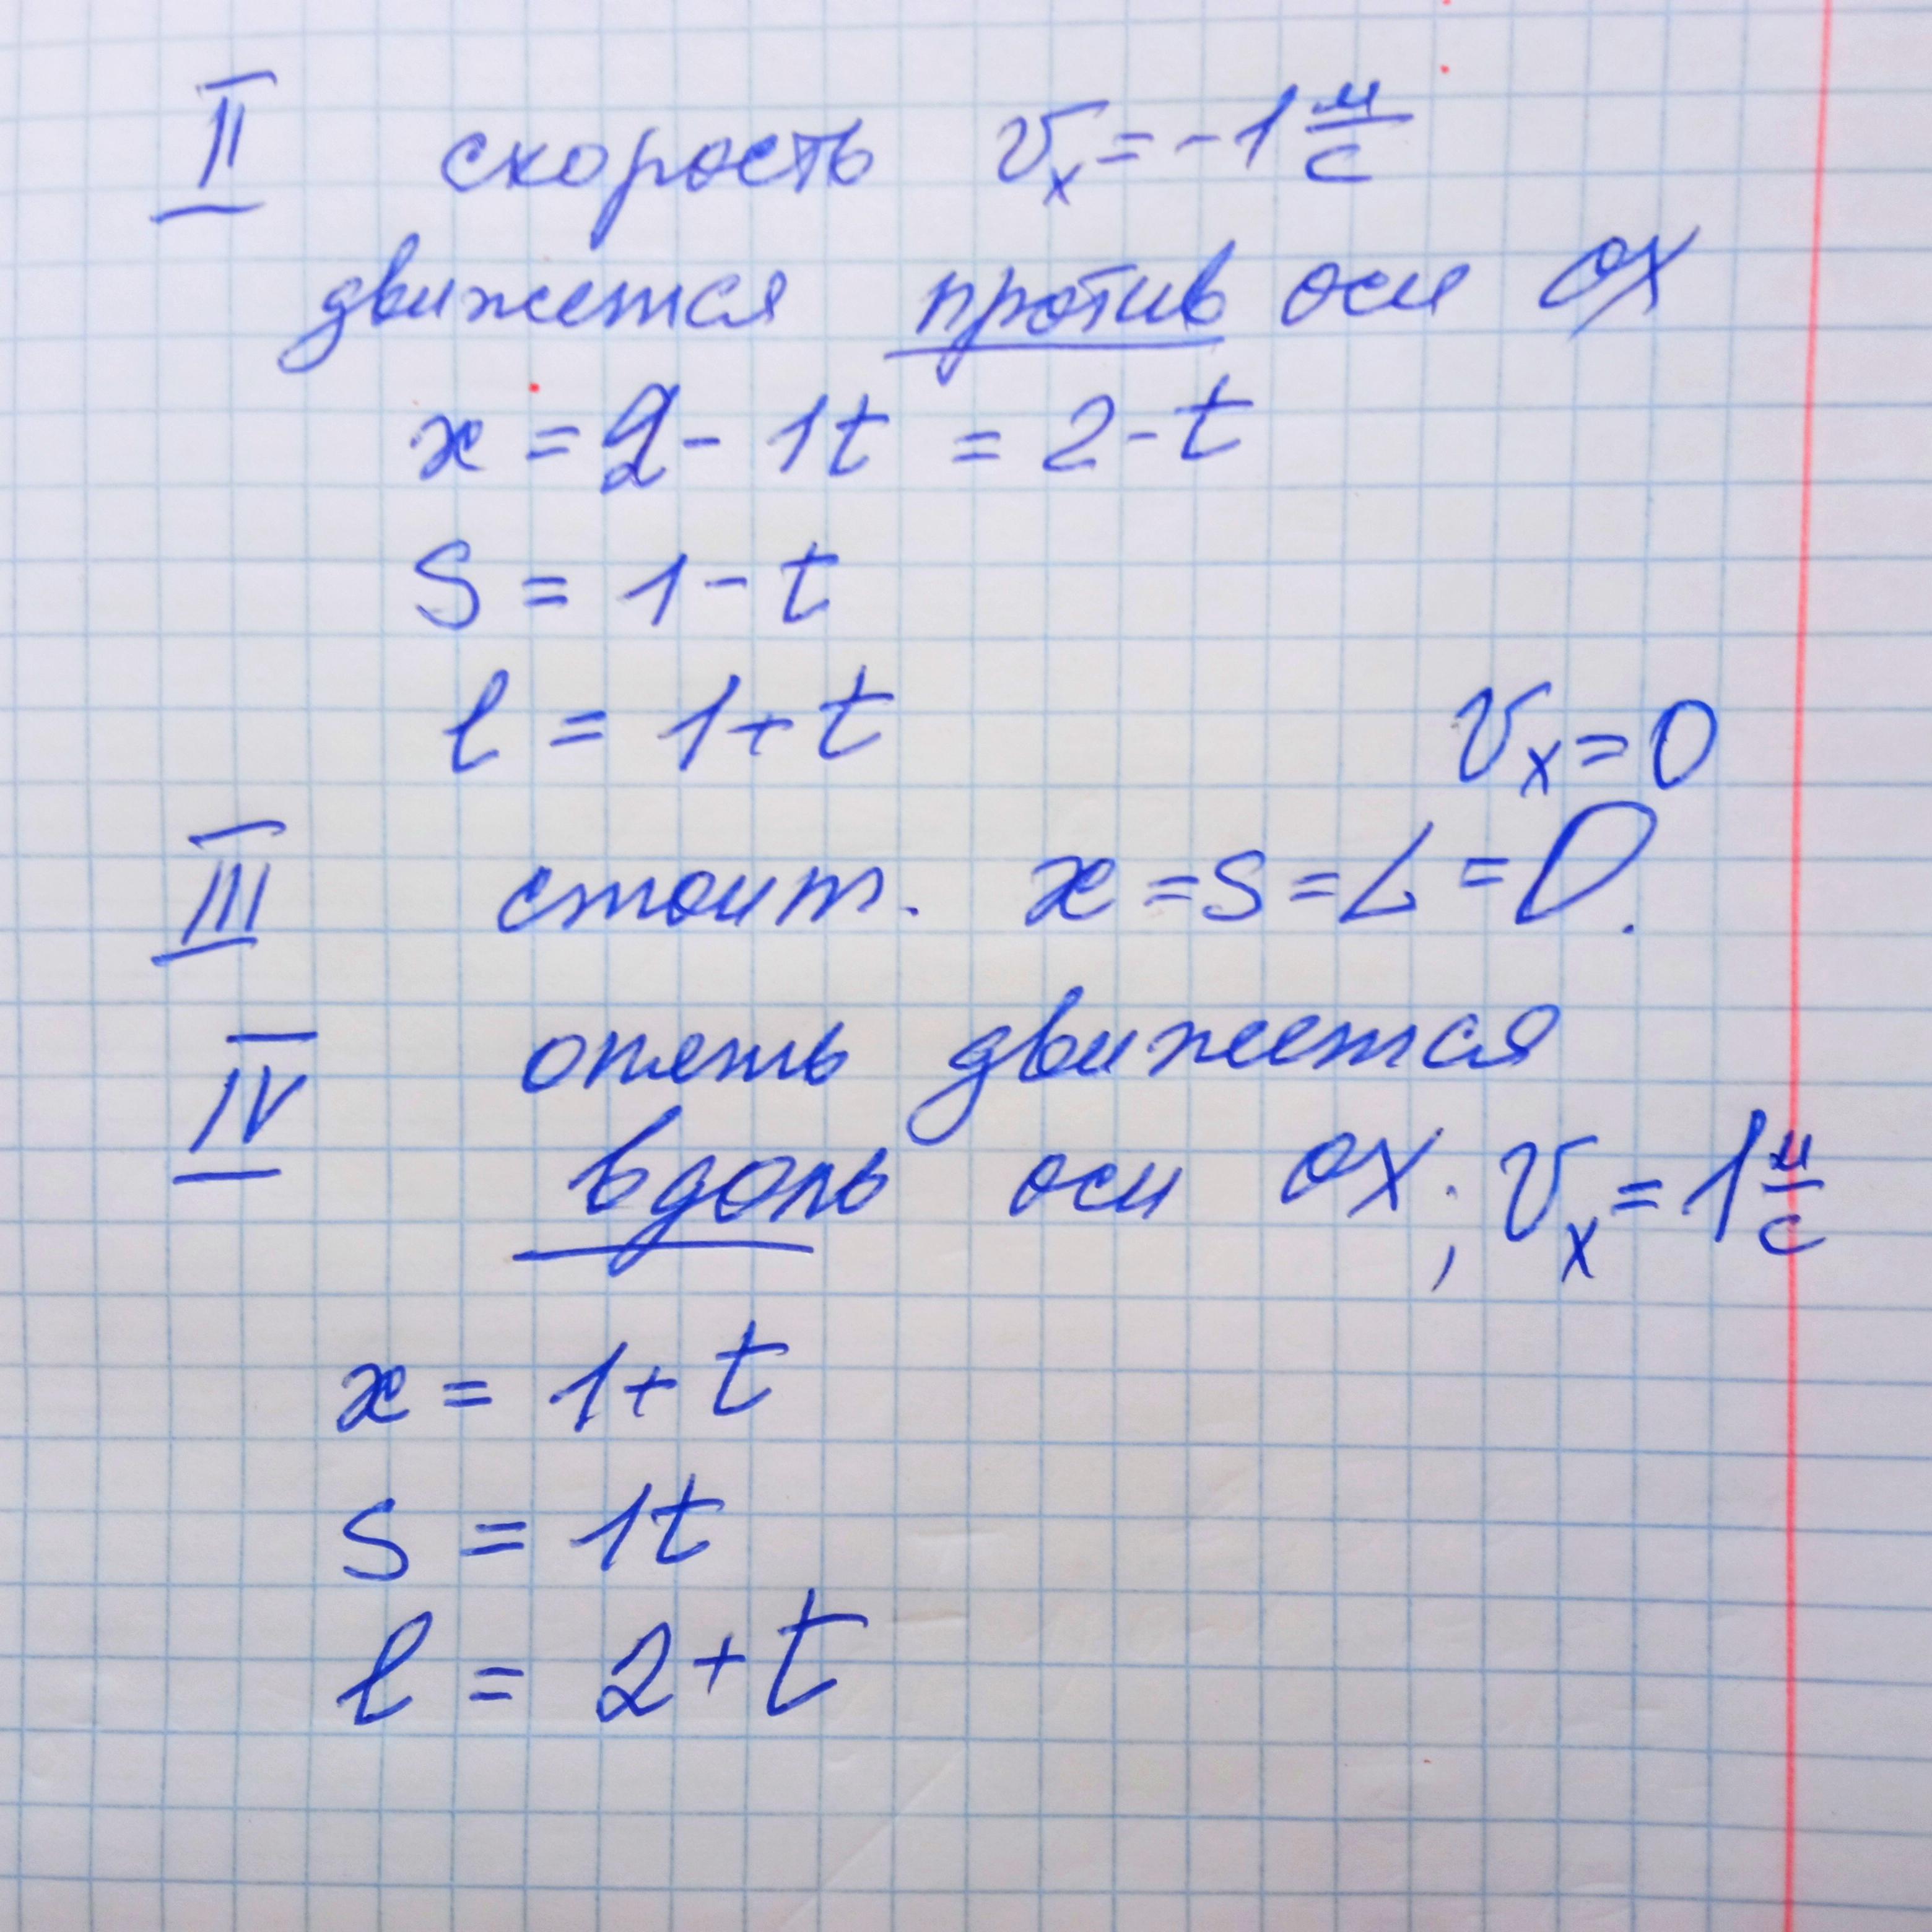 II скорость Vₓ = -1 м/с
движется против оси ОХ
x = 2 - 1t = 2 - t
S = 1 - t
l = 1 + t
Vₓ = 0
III стоит. x = S = L = 0.
IV опять движется
вдоль оси ОХ; Vₓ = 1 м/с
x = 1 + t
S = 1t
l = 2 + t